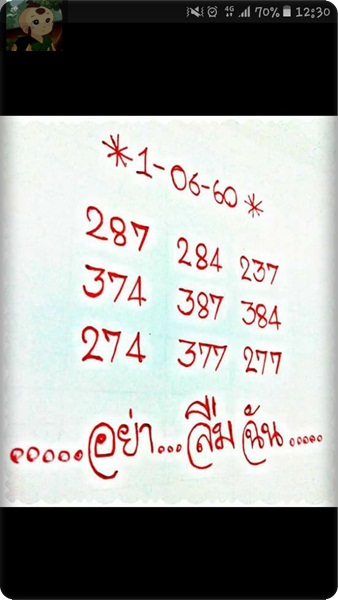 4G 70% 12:30
*1-06-60*
287 284 237
374 387 384
274 377 277
.....อย่า...ลืมฉัน.....